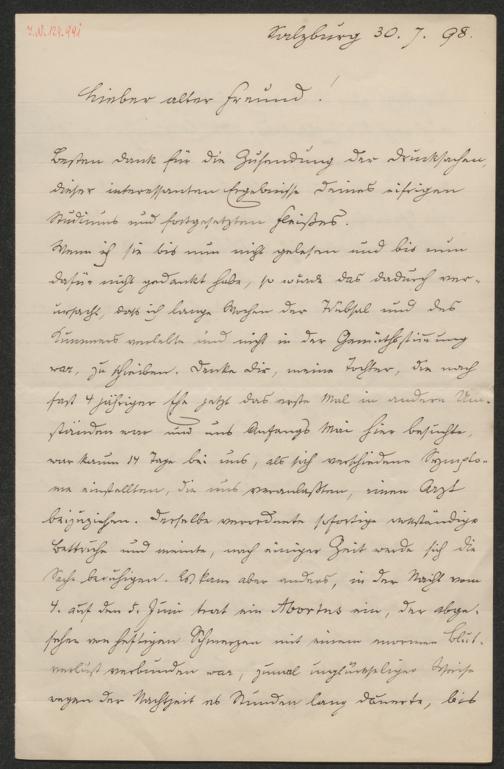 I.N. 129.991
Salzburg 30. 7. 98.
Lieber alter Freund!
Besten Dank für die Zusendung der Drucksachen,
dieser interessanten Ergebnisse Deines eifrigen
Studiums und fortgesetzten Fleißes.
Wenn ich sie bis nun nicht gelesen und bis nun
dafür nicht gedankt habe, so wurde das dadurch ver-
ursacht, daß ich lange Wochen der Trübsal und des
Kummers verlebte und nicht in der Gemüthsstimmung
war, zu schreiben. Denke Dir, meine Tochter, die nach
fast 4 jähriger Ehe jetzt das erste Mal in andern Um-
ständen war und uns Anfangs Mai hier besuchte,
war kaum 14 Tage bei uns, als sich verschiedene Sympto-
me einstellten, die uns veranlaßten, einen Arzt
beizuziehen. Derselbe verordnete sofortige vollständige
Bettruhe und meinte, nach einiger Zeit werde sich die
Sache beruhigen. Es kam aber anders, in der Nacht vom
4. auf den 5. Juni trat ein Abortus ein, der abge-
sehen von heftigen Schmerzen mit einem enormen Blut-
verlust verbunden war, zumal unglückseliger Weise
wegen der Nachtzeit es Stunden lang dauerte, bis